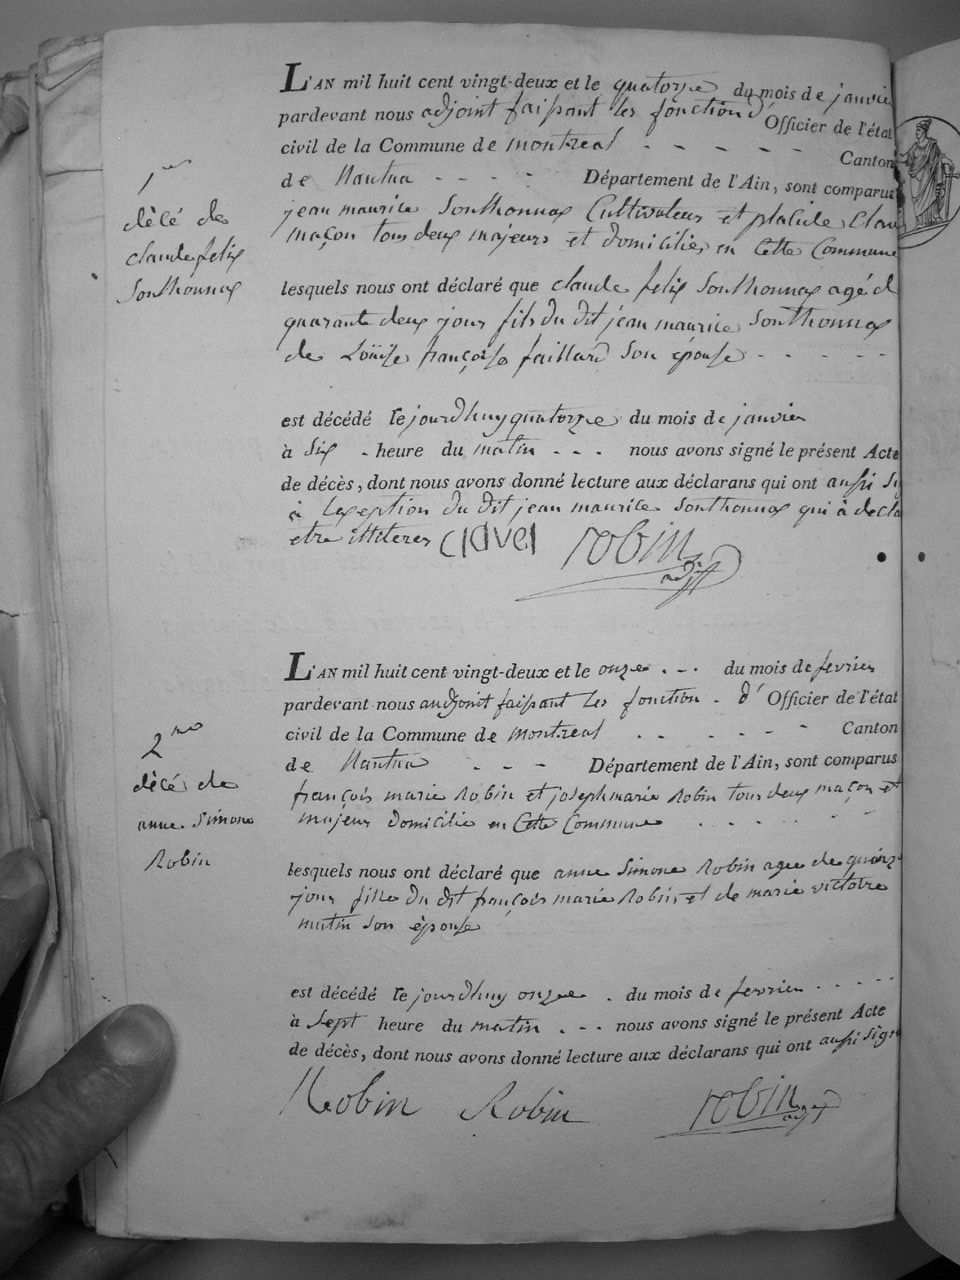 L'AN mil huit cent vingt-deux et le quatorze du mois de janvier
pardevant nous adjoint faisant les fonction d' Officier de l'état
civil de la Commune de montreal - - - - - - Canton
1er
de Nantua - - - - Département de l'Ain, sont comparus
décé de
jean maurice Sonthonnax Cultivateur et placide Clav
claude felix
maçon tous deux majeurs et domiciliés en Cette Commune
Sonthonnax
lesquels nous ont déclaré que claude felix Sonthonnax agé d
quarante deux jour fils du dit jean maurice Sonthonnax
de Loüise françoise faillard son épouse - - - - - -
est décédé le jourdhuy quatorze du mois de janvier
à Six - heure du matin - - - nous avons signé le présent Acte
de décès, dont nous avons donné lecture aux déclarans qui ont aussi Si
à Lexeption du dit jean maurice Sonthonnax qui à decla
etre illiteres clavel robin
adjt
L'AN mil huit cent vingt-deux et le onze . - . du mois de fevrier
pardevant nous andjoint faisant les fonction - d' Officier de l'état
civil de la Commune de montreal - - - - - - Canton
2me
de Nantua - - - Département de l'Ain, sont comparus
décé de
françois marie Robin et joseph marie Robin tous deux maçon et
anne Simone
majeur domicilie en Cette Commune - - - - - -
Robin
lesquels nous ont déclaré que anne Simone Robin agee de quinze
jour fille du dit françois marie Robin et de marie victoire
mutin son épouse
est décédé le jourdhuy onzee . du mois de fevrier - - - - -
à Sept heure du matin . - - nous avons signé le présent Acte
de décès, dont nous avons donné lecture aux déclarans qui ont aussi Sign
Robin Robin robin
adjt